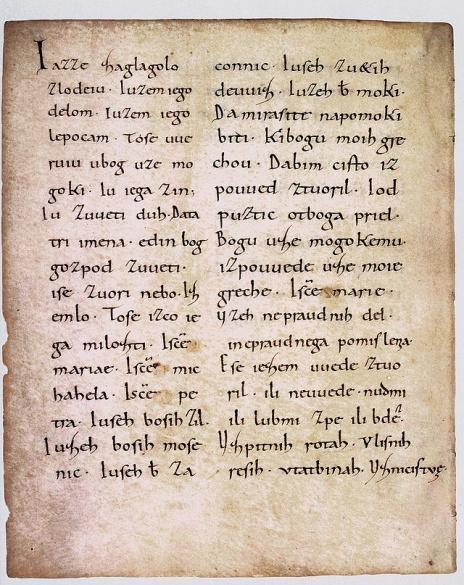 Iazze zaglagolo
zlodeiu · Iuzem iego
delom · Iuzem iego
lepocam · Tose uue
ruiu ubog uze mo
goki · Iu iega zin ·
Iu zuueti duh · Data
tri imena · edin bog
gozpod zuueti ·
ise zuori nebo · Iz
emlo · Tose izco ie
ga milozti · Isc̄e
mariae · Isc̄e mic
hahela · Isc̄e pe
tra · Iuseh bosih zil ·
Iuzeh bosih mose
nic · Iuseh b̄ za
connic · Iuseh zuetih
deuuiz · Iuzeh b̄ moki ·
Da mirasite napomoki
biti · Kibogu moih gre
chou · Dabim cisto iz
pouued ztuoril · Iod
puztic otboga priel ·
Bogu uze mogokemu ·
izpouuede uze moie
greche · Isc̄e marie ·
uzeh nepraudnih del ·
inepraudnega pomislenia ·
Ese iezem uuede ztuo
ril · ili neuuede · nudmi
ili lubmi zpe ili bde ·
Uzpitnih rotah · Vlisnih
resih · vtatbinah ·